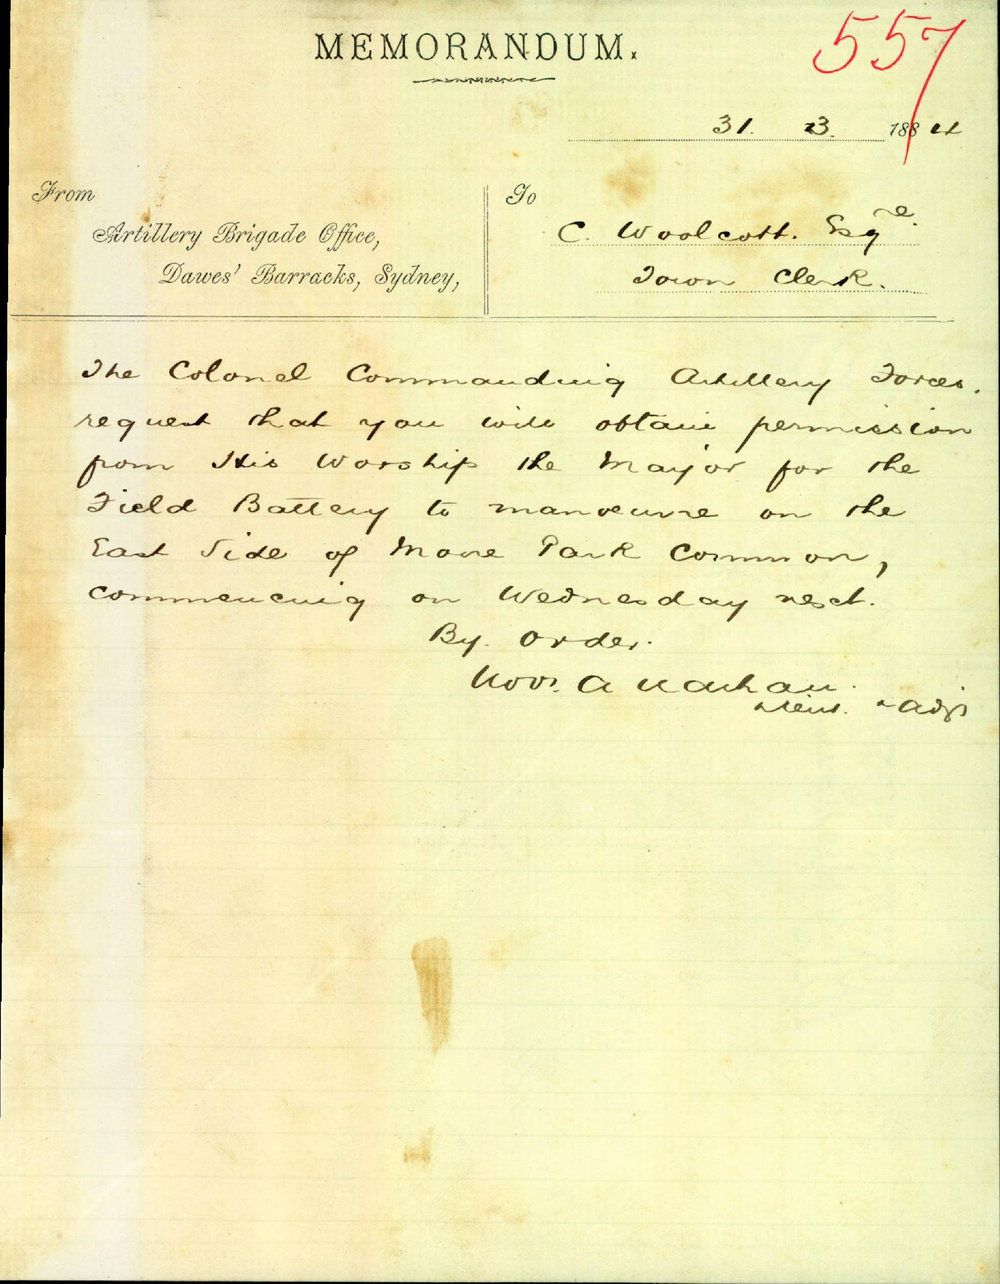 MEMORANDUM.
557
31. 3. 1884
From
Artillery Brigade Office,
Dawes' Barracks, Sydney,
To
C. Woolcott. Esqre.
Town Clerk.
The Colonel Commanding Artillery Forces.
request that you will obtain permission
from His Worship the Mayor for the
Field Battery to manoeuvre on the
East Side of Moore Park Common,
commencing on Wednesday next.
By. Order.
A
Lieut. & Adjt